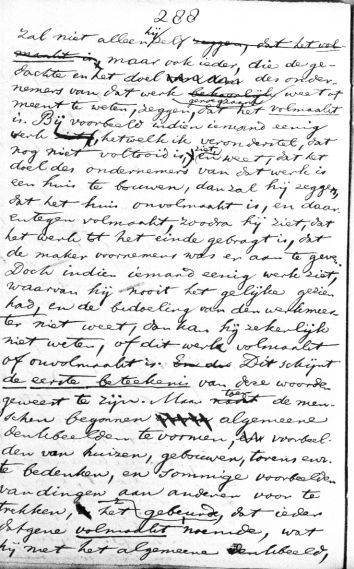 288
zal niet alleen hij zelf zeggen, dat het vol-
maakt is, maar ook ieder, die de ge-
dachte en het doel des onder-
nemers van dat werk behoorlijk weet of
genoegzaam
meent te weten, zeggen, dat het volmaakt
is. Bij voorbeeld indien iemand eenig
werk ziet, hetwelk ik veronderstel, dat
nog niet voltooid is, en weet, dat het
doel des ondernemers van dat werk is
een huis te bouwen, dan zal hij zeggen,
dat het huis onvolmaakt is, en daar-
entegen volmaakt, zoodra hij ziet, dat
het werk tot het einde gebragt is, dat
de maker voornemens was er aan te geven.
Doch indien iemand eenig werk ziet,
waarvan hij nooit het gelijke gezien
had, en de bedoeling van den werkmees-
ter niet weet, dan kan hij zekerlijk
niet weten, of dit werk volmaakt
of onvolmaakt is. En dus Dit schijnt
de eerste beteekenis van deze woorden
geweest te zijn. Maar toen de men-
schen begonnen algemeene
denkbeelden te vormen, voorbeel-
den van huizen, gebouwen, torens enz.
te bedenken, en sommige voorbeelden
van dingen aan anderen voor te
trekken, het gebeurde, dat ieder
datgene volmaakt noemde, wat
hij met het algemeene denkbeeld,